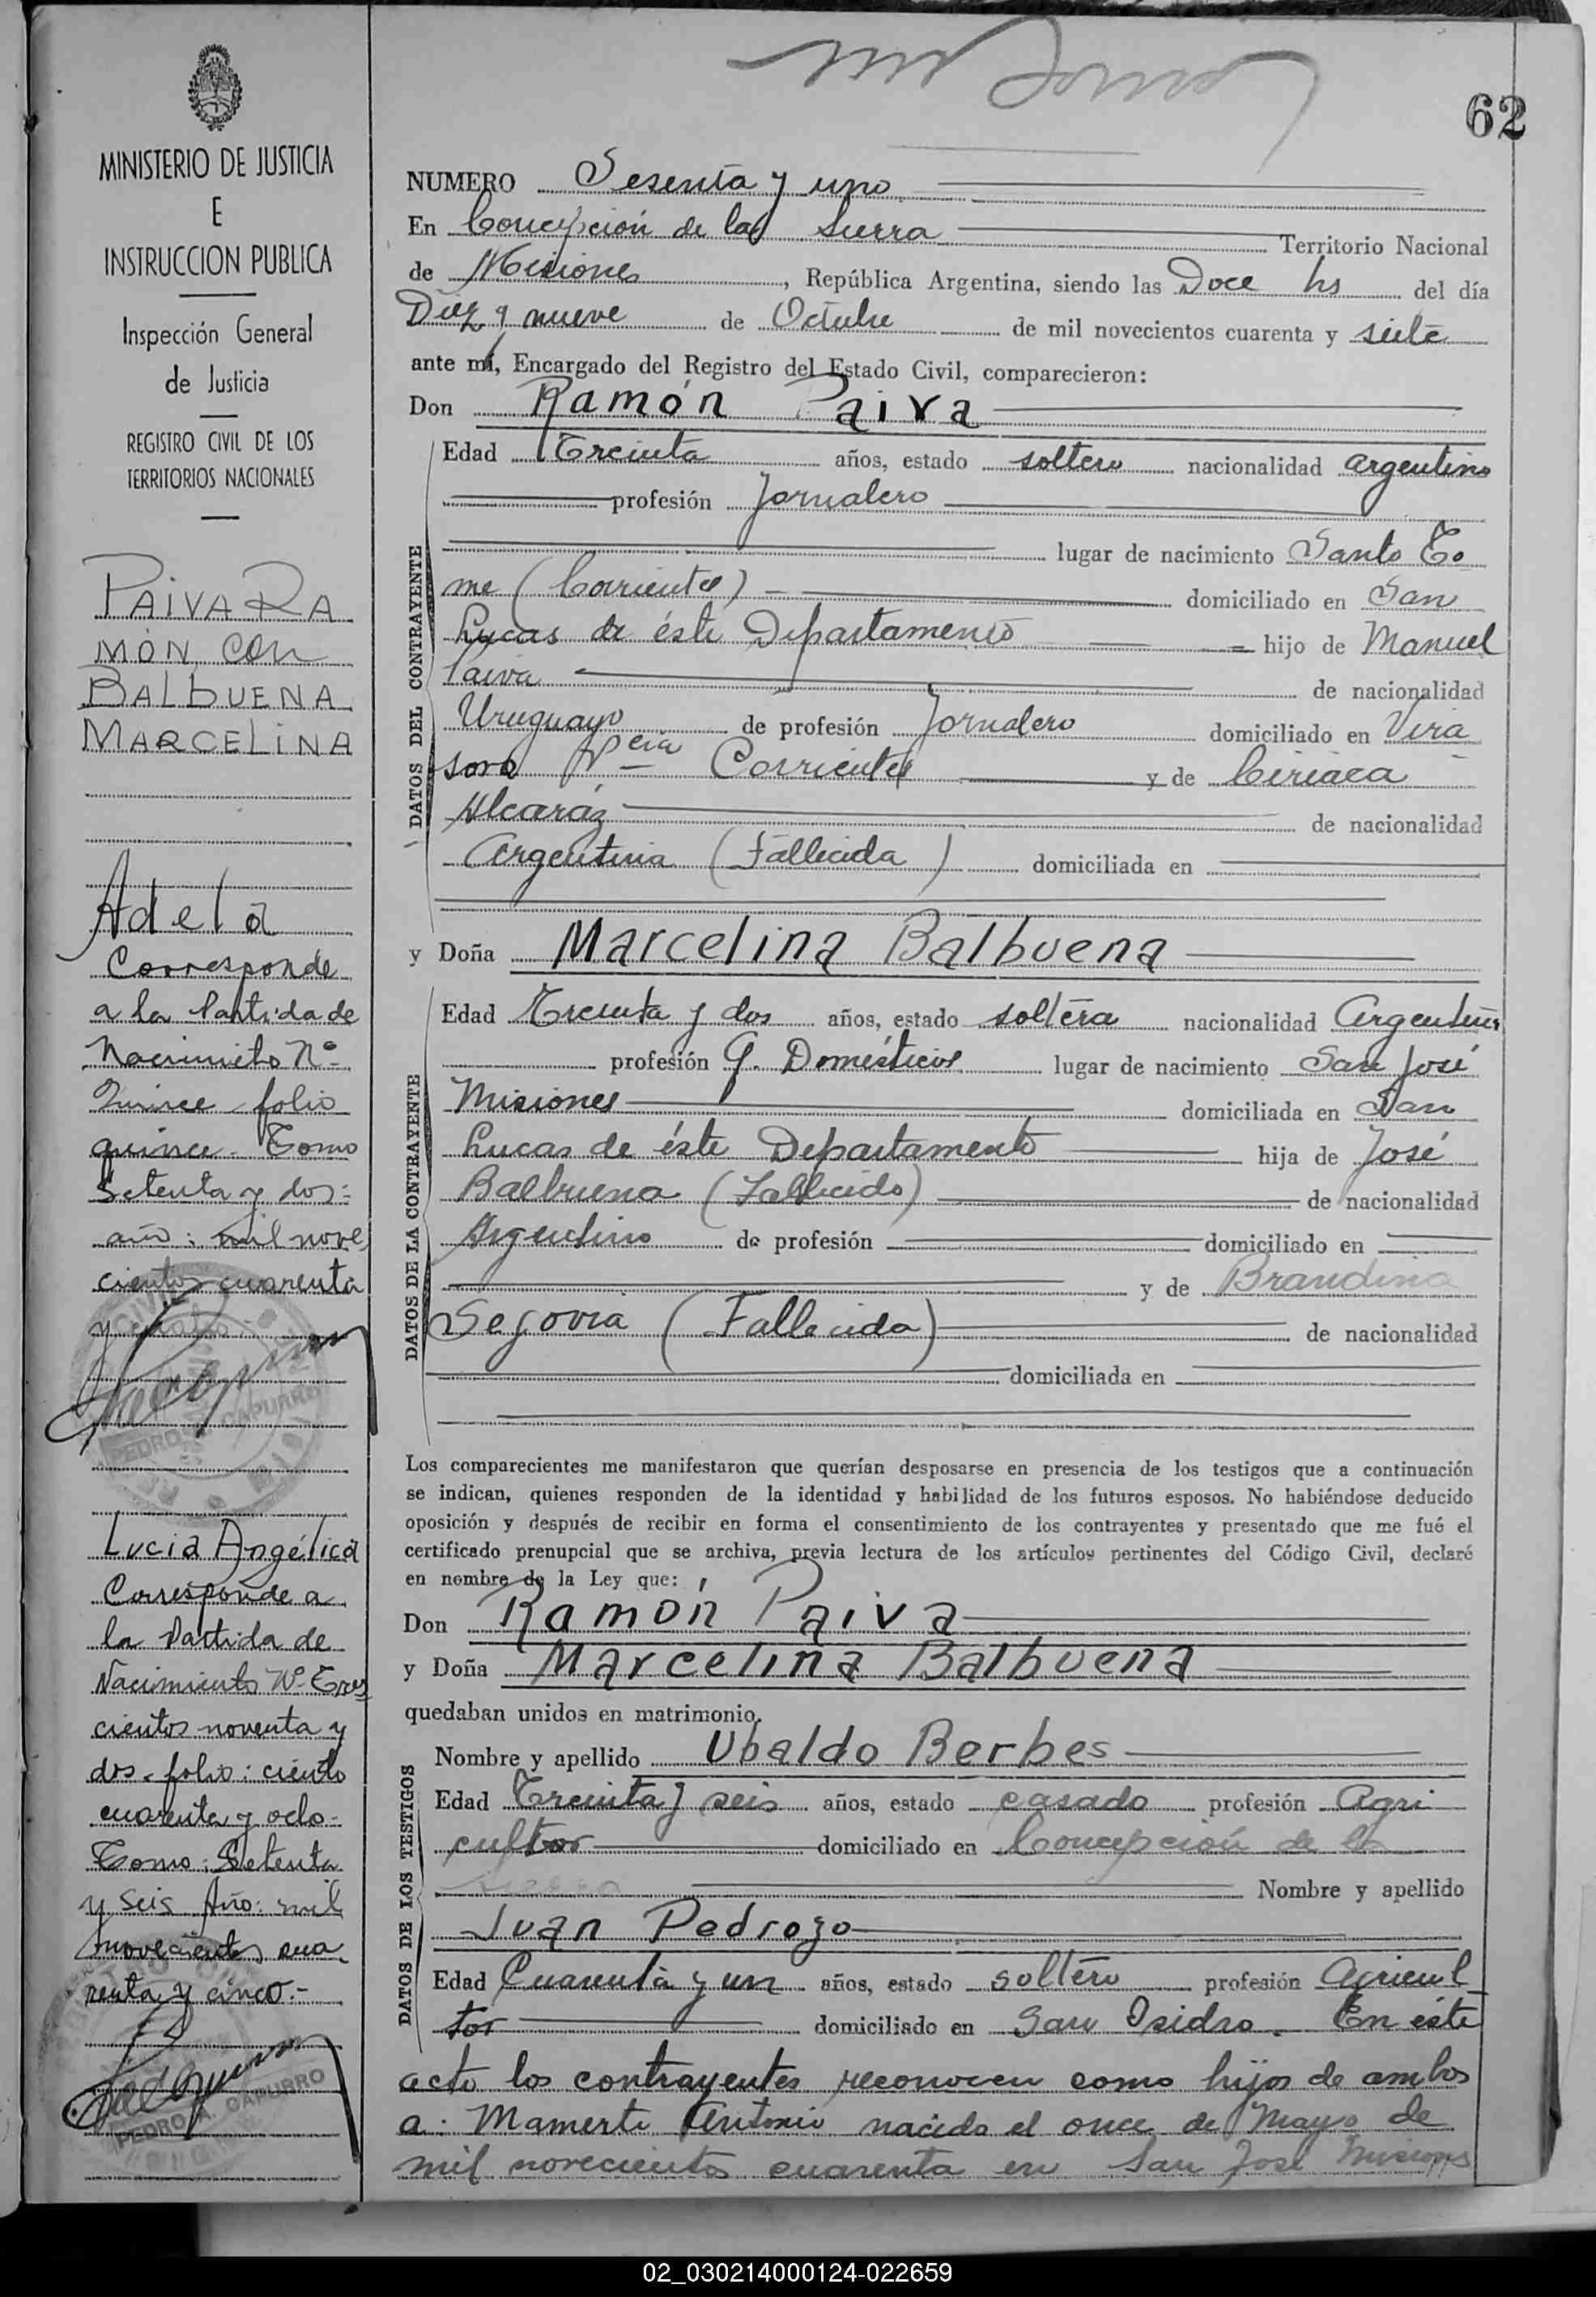 62
MINISTERIO DE JUSTICIA
E
INSTRUCCION PUBLICA
Inspección General
de Justicia
REGISTRO CIVIL DE LOS
TERRITORIOS NACIONALES
PAIVA RA
MÓN con
BALBUENA
MARCELINA
Adela
Corresponde
a la Partida de
Nacimiento Nº
Quince folio
quince - Tomo
Setenta y dos:
año: mil nove
cientos cuarenta
y cuatro.-
CIVIL
PEDRO A. CAPURRO
Lucia Angélica
Corresponde a
la Partida de
Nacimiento Nº Tres
cientos noventa y
dos - folio: ciento
cuarenta y ocho-
Tomo: Setenta
y seis Año: mil
novecientos cua
renta y cinco.-
PEDRO A. CAPURRO
NUMERO Sesenta y uno
En Concepción de la Sierra Territorio Nacional
de Misiones, República Argentina, siendo las Doce hs del día
Diez y nueve de Octubre de mil novecientos cuarenta y siete
ante mí, Encargado del Registro del Estado Civil, comparecieron:
Don Ramón Paiva
DATOS DEL CONTRAYENTE
Edad Treinta años, estado soltero nacionalidad argentino
profesión Jornalero
lugar de nacimiento Santo To
me (Corrientes) domiciliado en San
Lucas de éste Departamento hijo de Manuel
Paiva de nacionalidad
Uruguayo de profesión Jornalero domiciliado en Vira
soro Pcia Corrientes y de Ciriaca
Alcaráz de nacionalidad
Argentina (Fallecida) domiciliada en
y Doña Marcelina Balbuena
DATOS DE LA CONTRAYENTE
Edad Treinta y dos años, estado soltera nacionalidad Argentina
profesión Q. Domésticos lugar de nacimiento San José
Misiones domiciliada en San
Lucas de éste Departamento hija de José
Balbuena (Fallecido) de nacionalidad
Argentino de profesión domiciliado en
y de Brandina
Segovia (Fallecida) de nacionalidad
domiciliada en
Los comparecientes me manifestaron que querían desposarse en presencia de los testigos que a continuación
se indican, quienes responden de la identidad y habilidad de los futuros esposos. No habiéndose deducido
oposición y después de recibir en forma el consentimiento de los contrayentes y presentado que me fué el
certificado prenupcial que se archiva, previa lectura de los artículos pertinentes del Código Civil, declaré
en nombre de la Ley que:
Don Ramón Paiva
y Doña Marcelina Balbuena
quedaban unidos en matrimonio.
DATOS DE LOS TESTIGOS
Nombre y apellido Ubaldo Berbes
Edad Treinta y seis años, estado casado profesión Agri
cultor domiciliado en Concepción de la
Sierra Nombre y apellido
Juan Pedrozo
Edad Cuarenta y un años, estado soltero profesión Agricul
tor domiciliado en San Isidro. En éste
acto los contrayentes reconocen como hijos de ambos
a: Mamerto Antonio nacido el once de Mayo de
mil novecientos cuarenta en San José Misiones
02_030214000124-022659